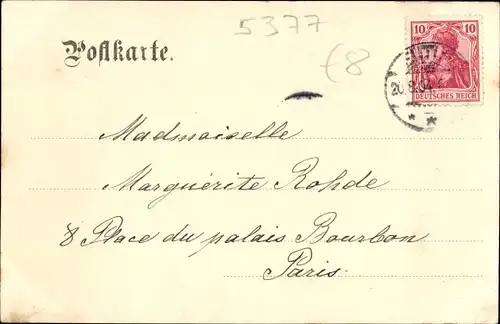 5377
10 10
Postkarte.
€8
20.8.04
DEUTSCHES REICH
Madmoiselle
Marguérite Rohde
8 Place du palais Bourbon
Paris.